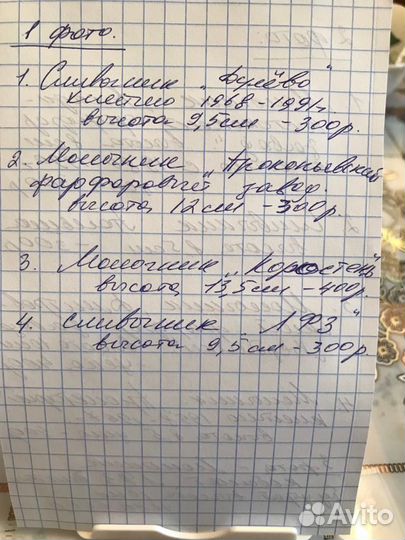 1 фото.
1. Сливочник "Дулёво"
клеймо 1968-1991г
высота 9,5см - 300р.
2. Молочник "Прокопьевский
фарфоровый" завод.
высота 12см - 300р.
3. Молочник "Коростень"
высота 13,5см - 400р.
4. Сливочник "ЛФЗ"
высота 9,5см - 300р
Avito